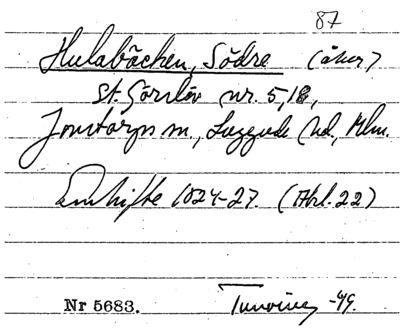 87
Hulabäcken, Södre (åker)
St. Görslöv nr. 5, 18,
Jonstorps sn., Luggude hd, Mlm.
Enskifte 1824-27. (Akt. 22)
Nr 5683. Tuneving -49.